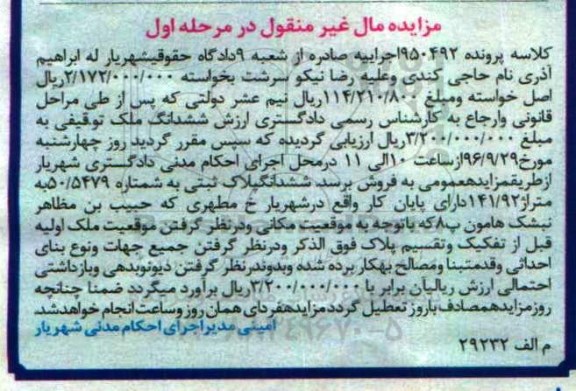 مزایده مال غیر منقول در مرحله اول
کلاسه پرونده ۹۵۰۴۹۲اجراییه صادره از شعبه ۹دادگاه حقوقیشهریار له ابراهیم
آذری نام حاجی کندی وعلیه رضا نیکو سرشت بخواسته ۲/۱۷۲/۰۰۰/۰۰۰ریال
اصل خواسته ومبلغ ۱۱۴/۲۱۰/۸۰۰ریال نیم عشر دولتی که پس از طی مراحل
قانونی وارجاع به کارشناس رسمی دادگستری ارزش ششدانگ ملک توقیفی به
مبلغ ۳/۲۰۰/۰۰۰/۰۰۰ریال ارزیابی گردیده که سپس مقرر گردید روز چهارشنبه
مورخ۹۶/۹/۲۹ازساعت ۱۰الی ۱۱ درمحل اجرای احکام مدنی دادگستری شهریار
ازطریقمزایدهعمومی به فروش برسد. ششدانگپلاک ثبتی به شمتاره ۵۰/۵۴۷۹به
متراژ۱۴۱/۹۲دارای پایان کار واقع درشهریار خ مطهری که حبیب بن مظاهر
نبشک هامون پ۸که باتوجه به موقعیت مکانی ودرنظر گرفتن موقعیت ملک اولیه
قبل از تفکیک وتقسیم پلاک فوق الذکر ودرنظر گرفتن جمیع جهات ونوع بنای
احداثی وقدمتبنا ومصالح بهکار برده شده وبدوندر نظر گرفتن دیونوبدهی وبازداشتی
احتمالی ارزش ریالیان برابر با ۳/۲۰۰/۰۰۰/۰۰۰ریال برآورد میگردد ضمنا چنانچه
روزمزایدهمصادف باروز تعطیل گردد مزایدهفردای همان روز وساعت انجام خواهدشد.
امینی مدیراجرای احکام مدنی شهریار
م الف ۲۹۲۳۲